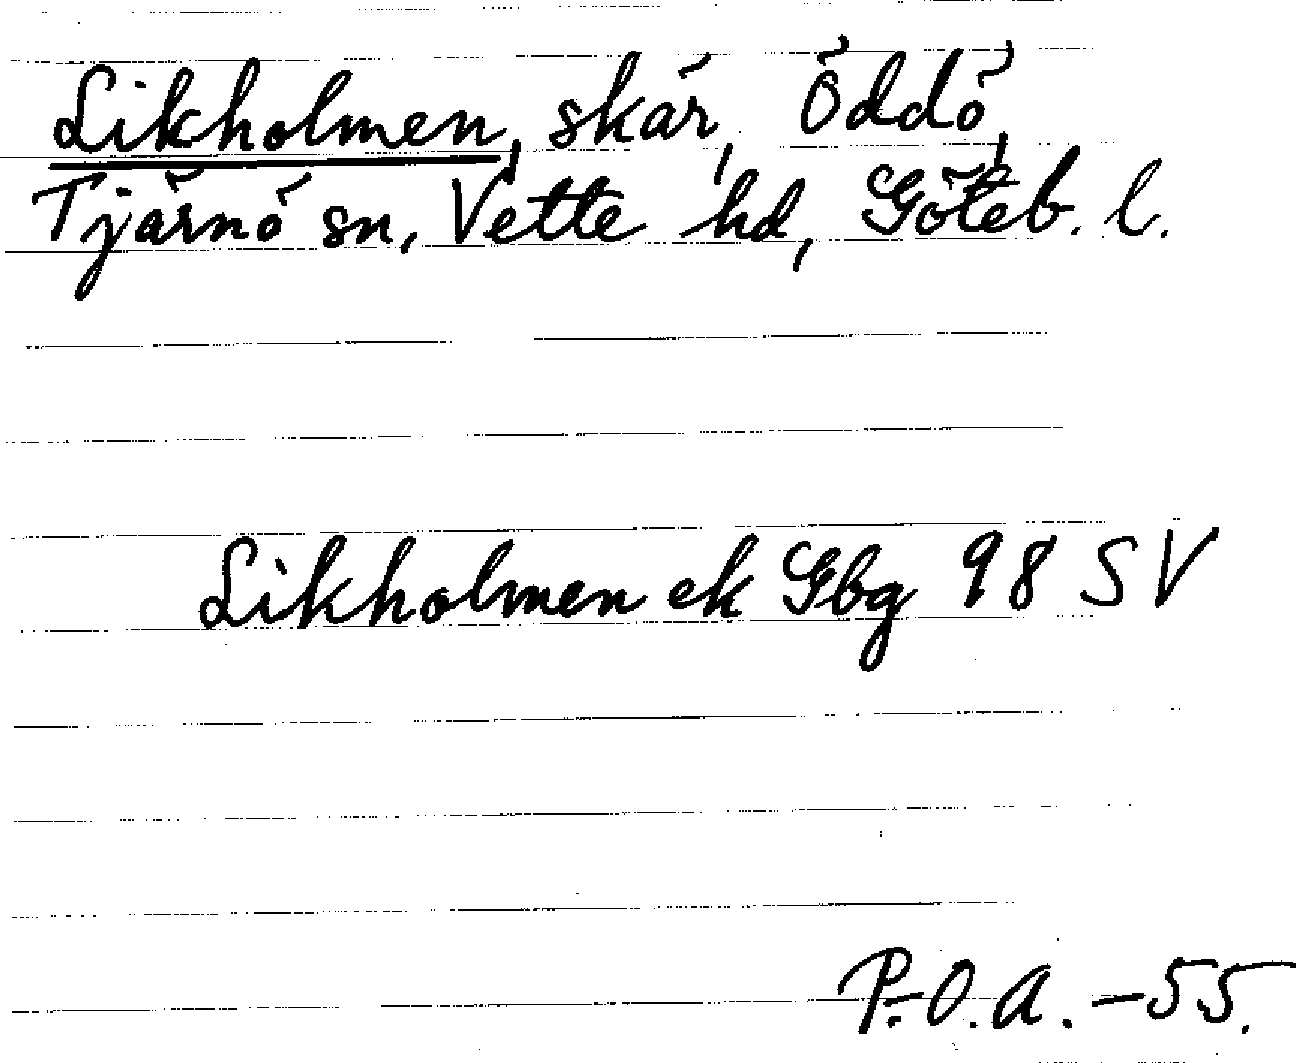 Likholmen, skär, Öddö,
Tjärnö sn, Vette hd, Göteb. l.
Likholmen ek Gbg 98 SV
P.-O.A. -55.